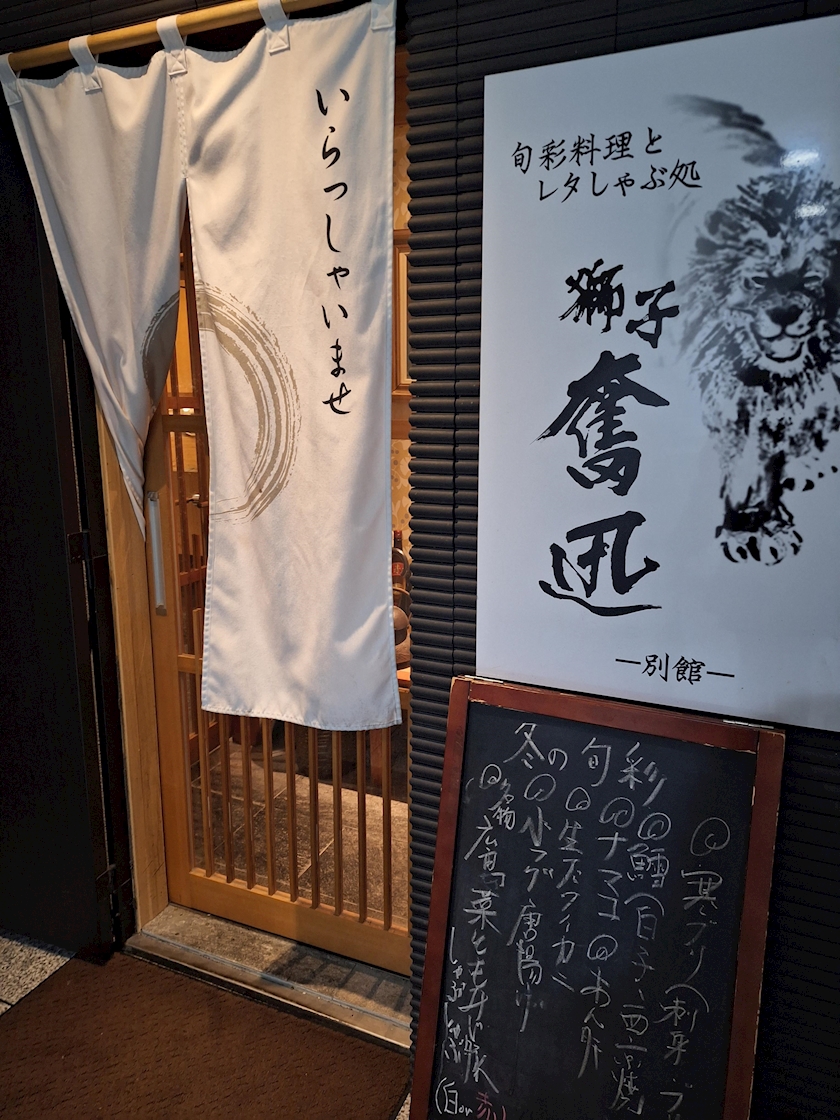 いらっしゃいませ
旬彩料理と
レタしゃぶ処
獅子
奮迅
—別館—
冬の旬彩
寒ブリ(刺身
鱈(白子
ナマコ
あん肝
生ズワイカニ
小フグ唐揚げ
名物
しゃぶしゃぶ
(白or赤)